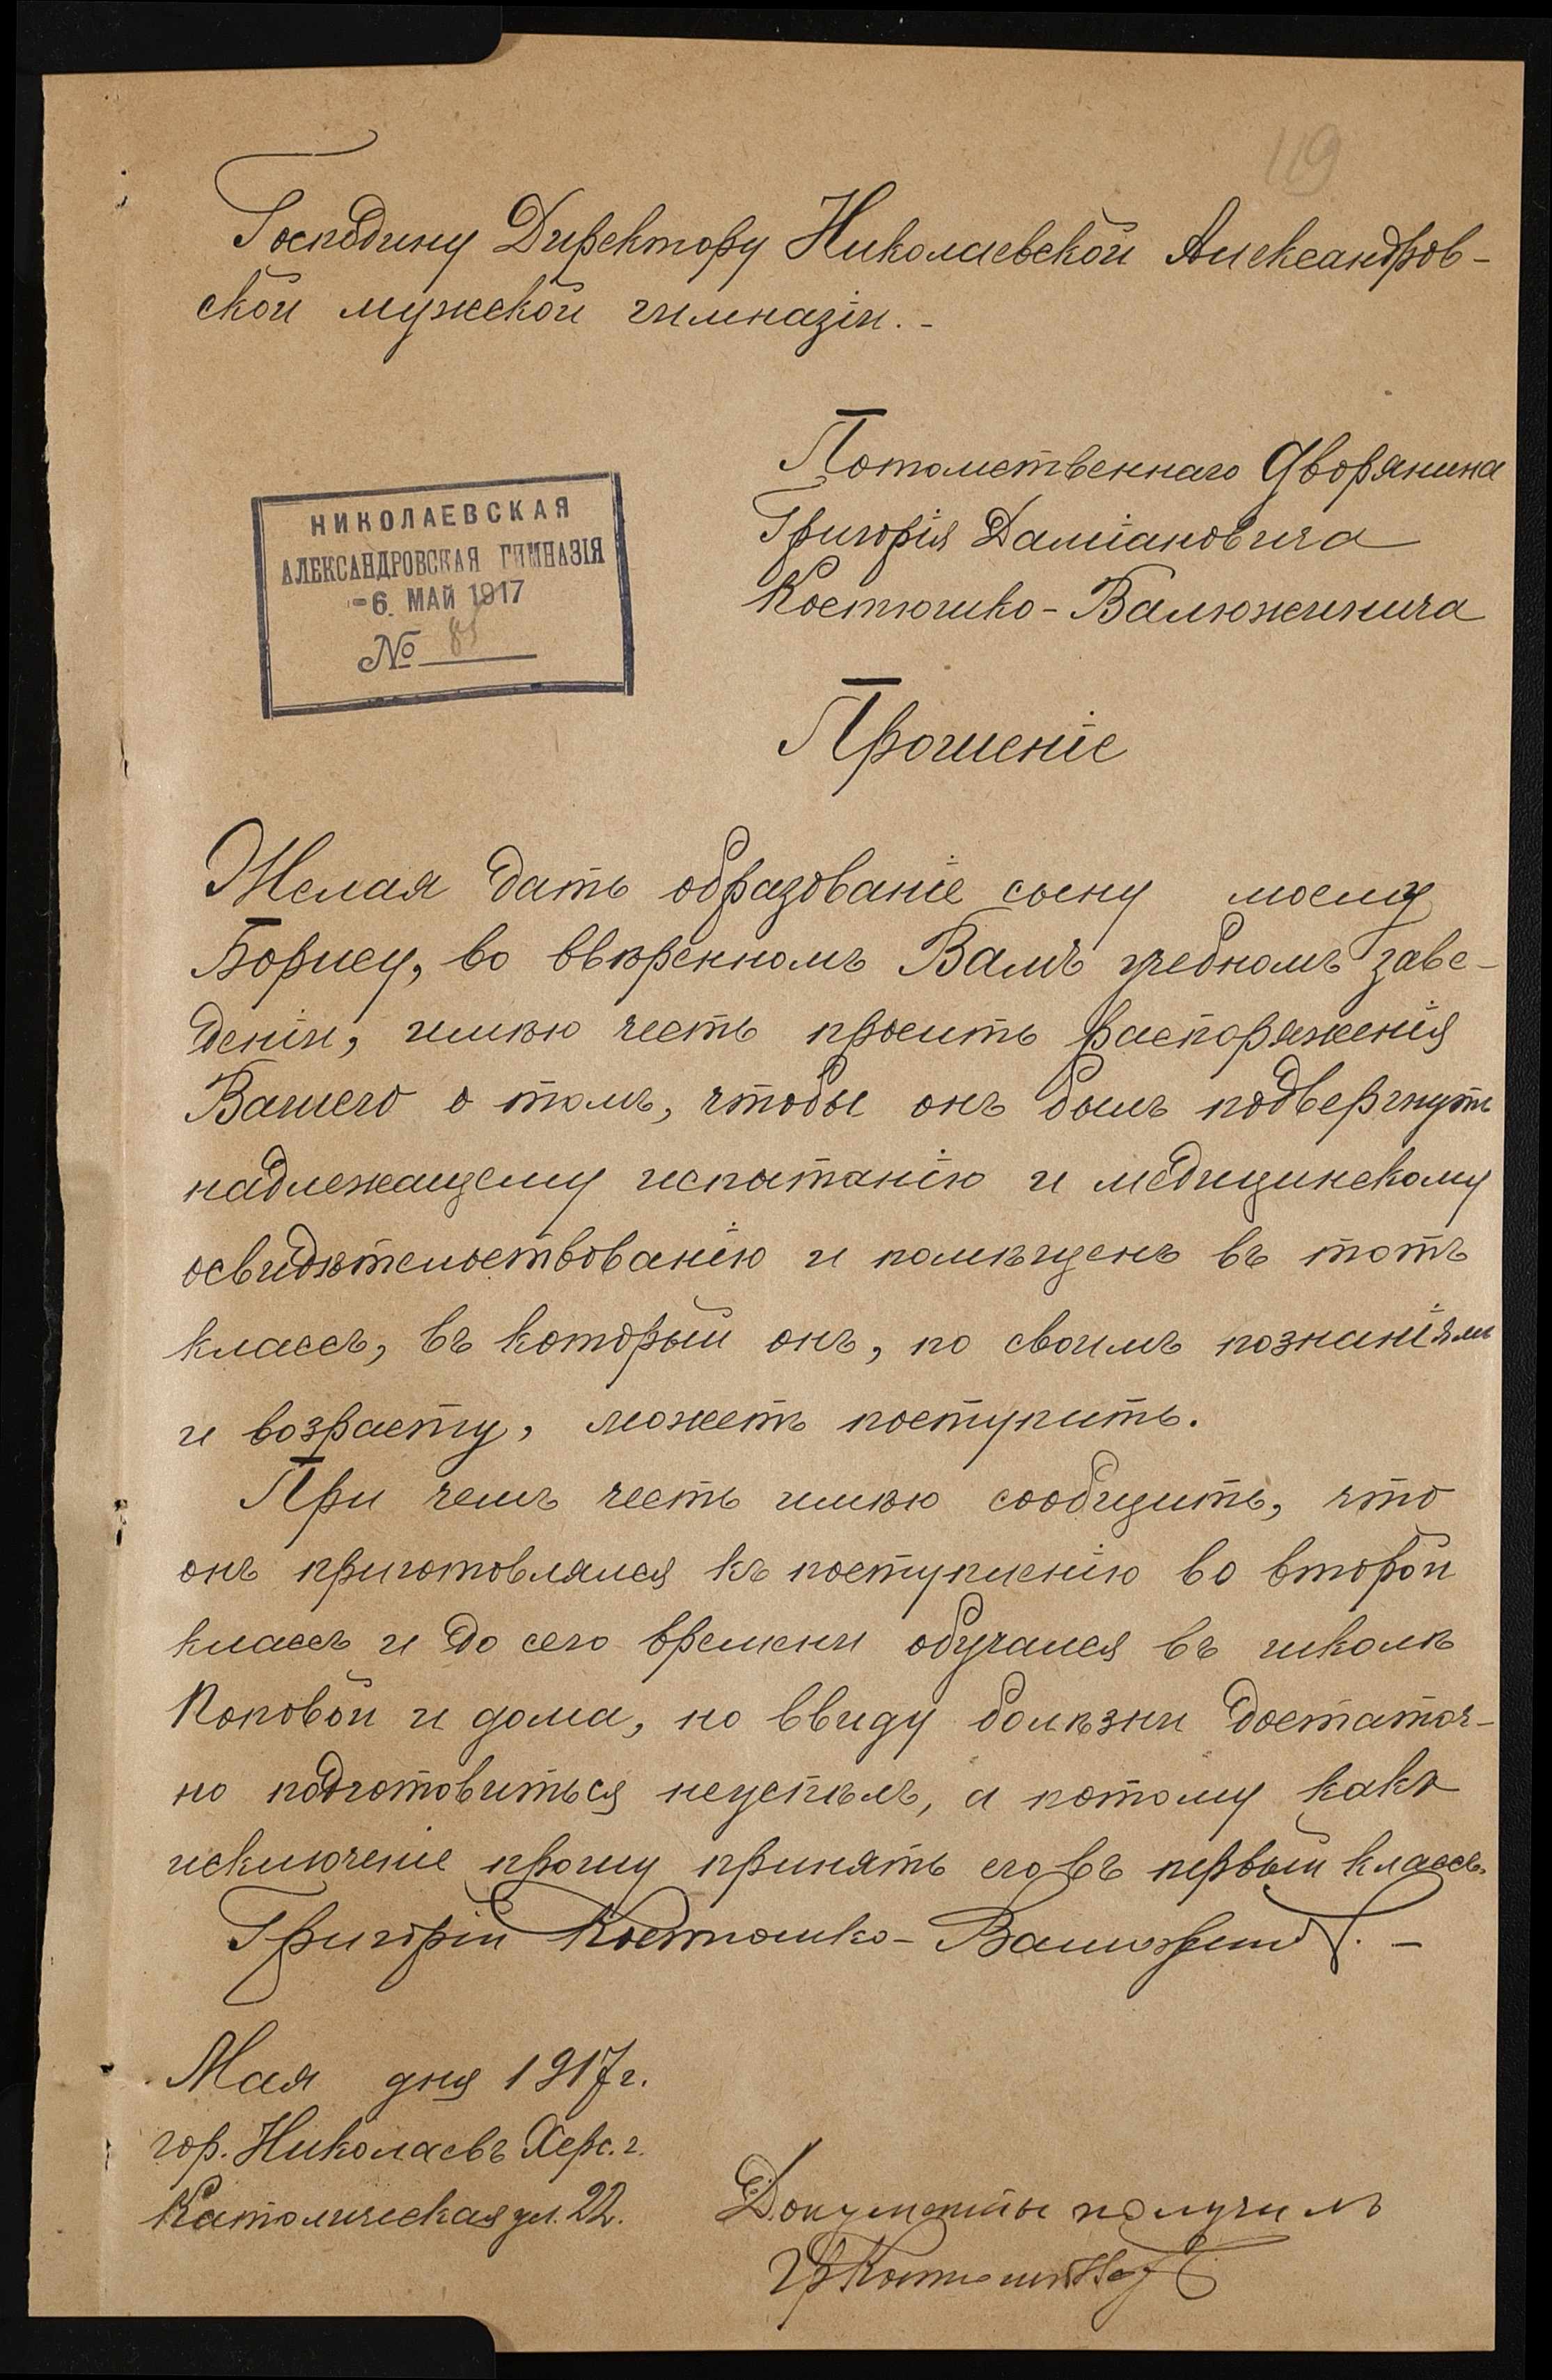 119
Господину Директору Николаевской Александров-
ской мужской гимназіи. -
Потомственнаго Дворянина
Григорія Даміановича
Костюшко-Валюжинича
НИКОЛАЕВСКАЯ
АЛЕКСАНДРОВСКАЯ ГИМНАЗІЯ
-6. МАЙ 1917
№ 81
Прошеніе
Желая дать образованіе сыну моему
Борису, во ввѣренномъ Вамъ учебномъ заве-
деніи, имѣю честь просить распоряженія
Вашего о томъ, чтобы онъ былъ подвергнутъ
надлежащему испытанію и медицинскому
освидѣтельствованію и помѣщенъ въ тотъ
классъ, въ который онъ, по своимъ познаніямъ
и возрасту, можетъ поступить.
При чемъ честь имѣю сообщить, что
онъ приготовлялся къ поступленію во второй
классъ и до сего времени обучался въ школѣ
Поповой и дома, но ввиду болѣзни достаточ-
но подготовиться неуспѣлъ, а потому какъ
исключеніе прошу принять его въ первый классъ.
Григорій Костюшко-Валюжинич. -
Мая дня 1917 г.
гор. Николаевъ Херс. г.
Католическая ул. 22.
Документы получилъ